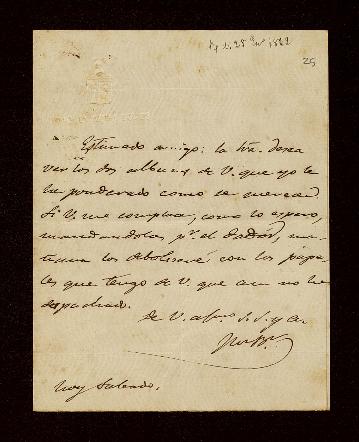 25
Estimado amigo: la Sra. desea
ver los dos albums de V. que yo le
he ponderado como se merecen
Si V. me complace, como lo espero,
mandandolos pr. el dador, ma-
ñana los debolveré con los pape-
les que tengo de V. que aun no he
despachado.
de V. afmo. S. S. y a
Hoy Sabado.